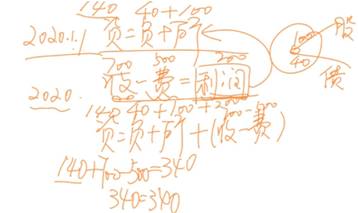 140 40+100
2020.1.1 资=负+所
100 股
40 债
700 500 200
2020. 收-费=利润
140 40+100+700-500
资=负+所+(收-费)
140+700-500=340
340=340